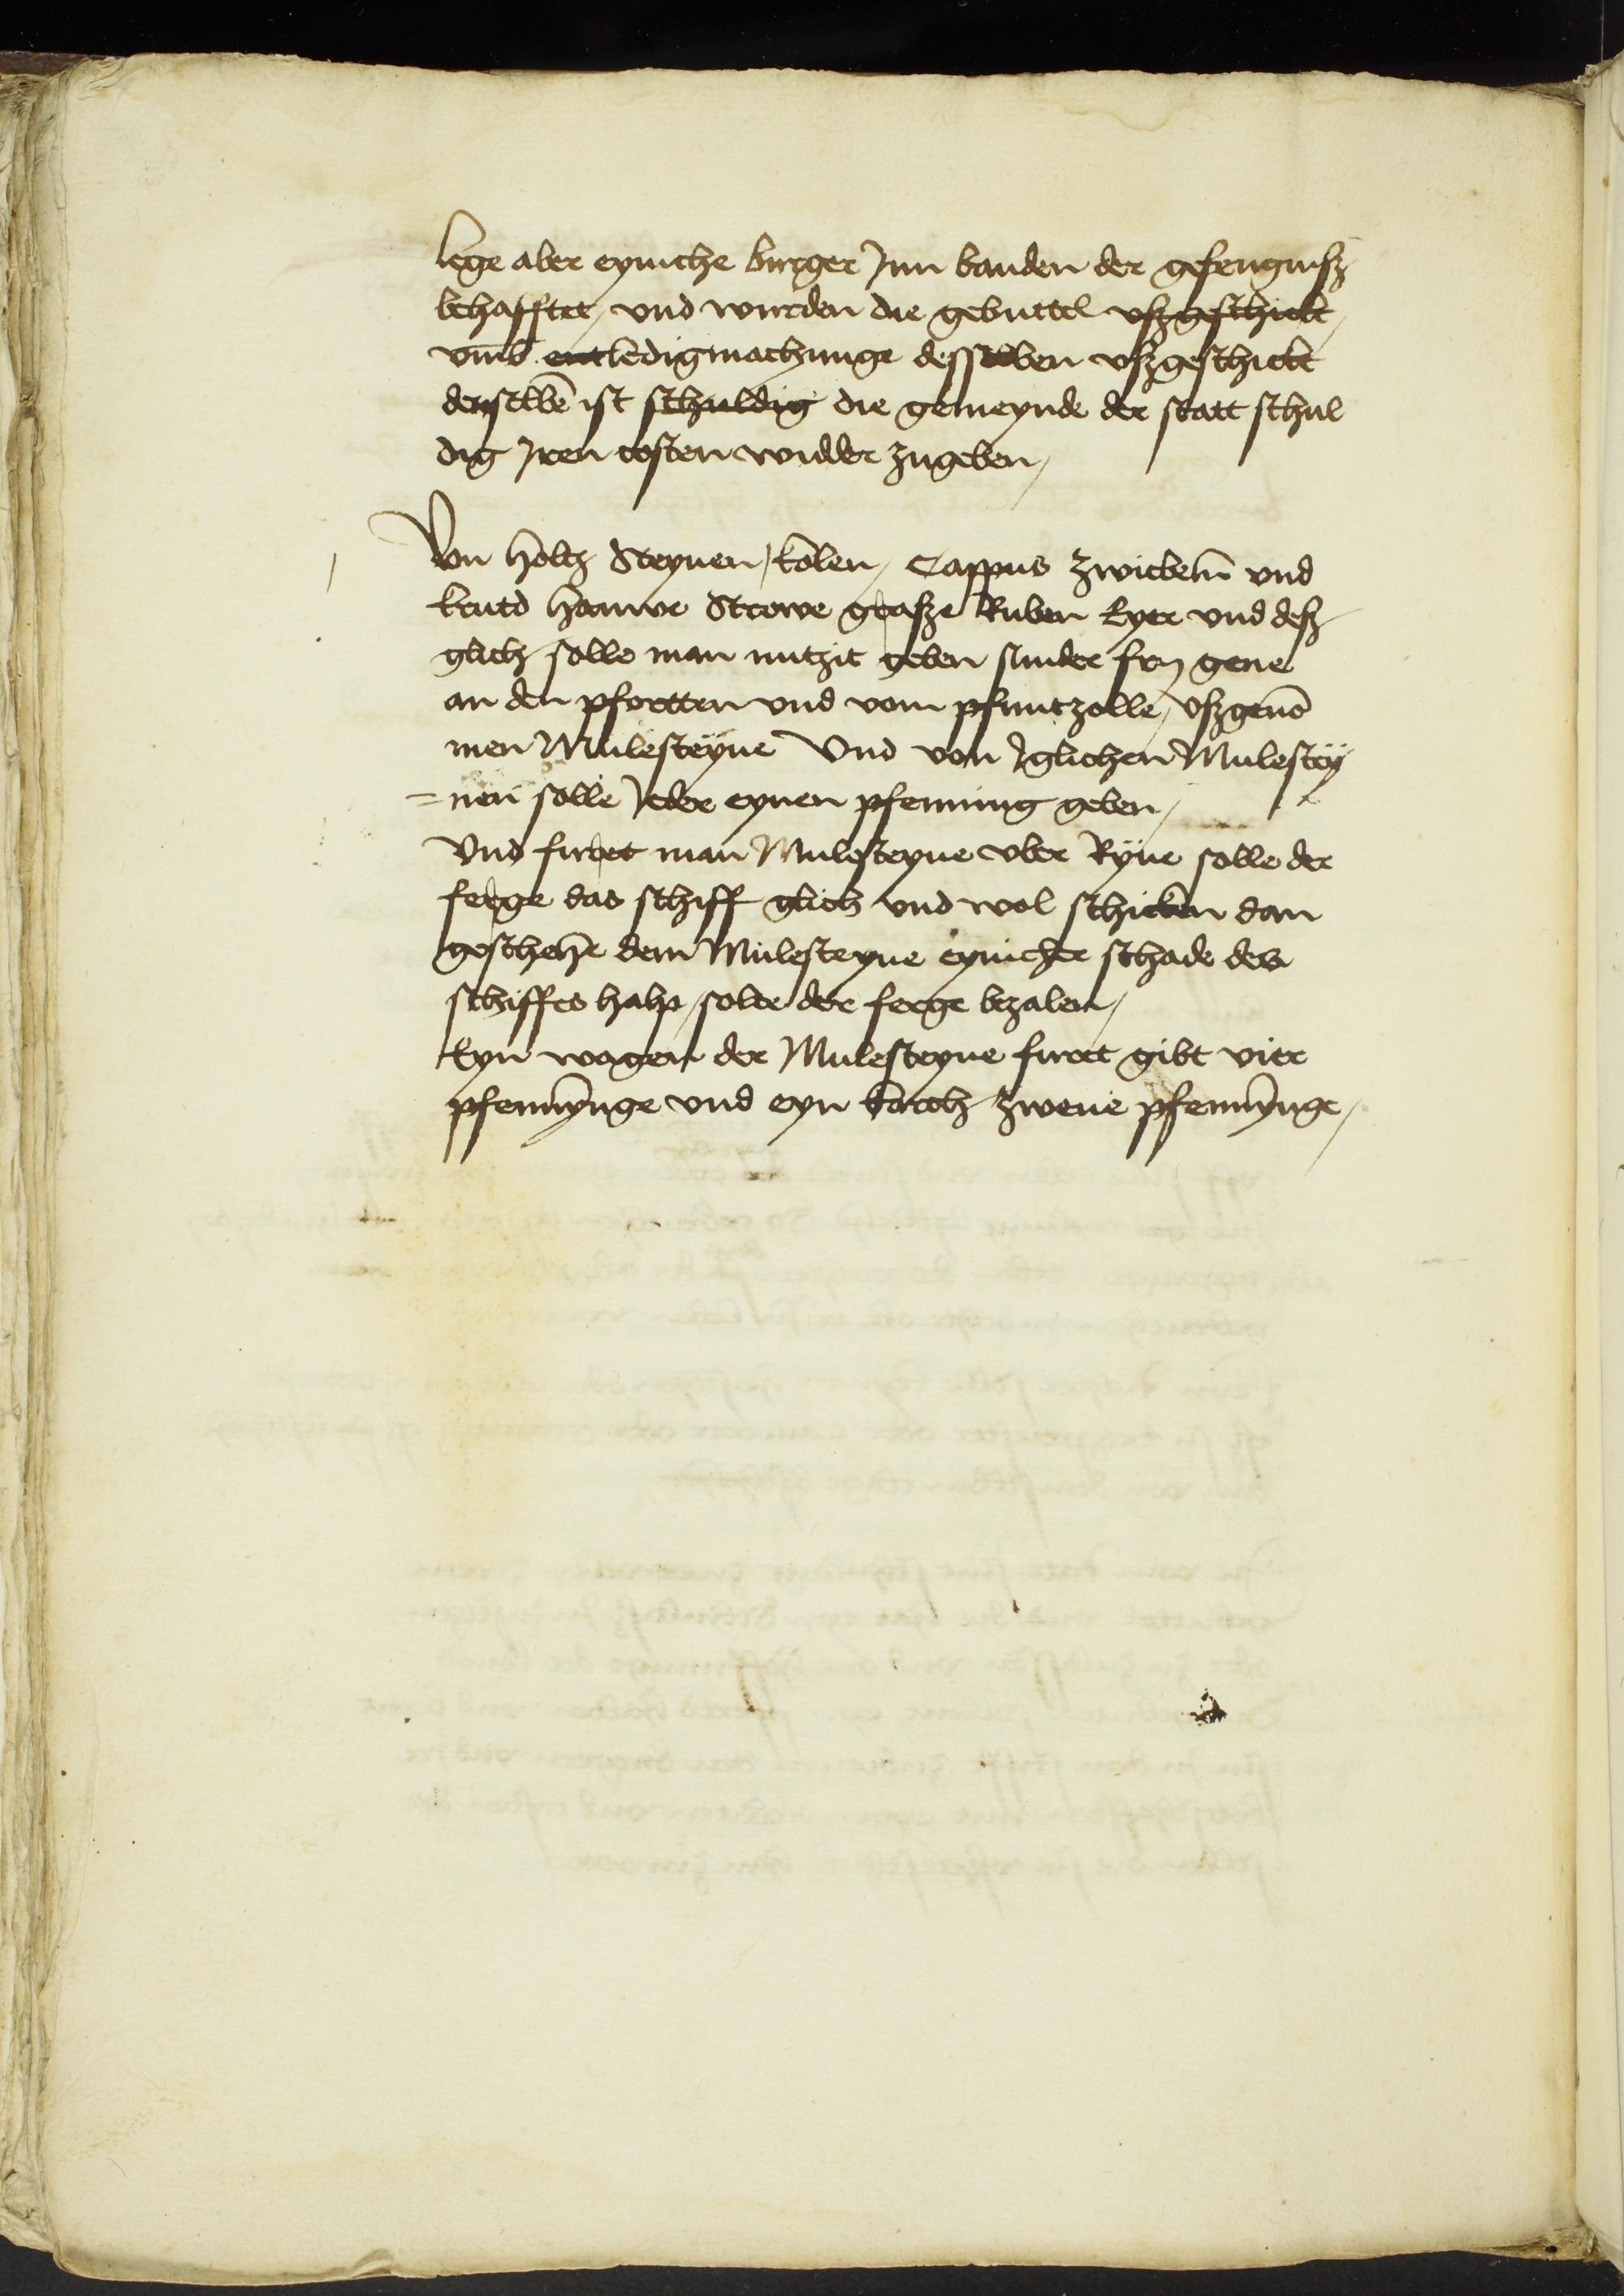 lege aber eyniche burger Inn banden der gefengnisz
behafftet, und wurden die gebuttel vszgeschickt,
vmb entledigmachunge desselben vszgeschickt
denselbē ist schuldig die gemeynde der statt schul
dig Iren costen widder zugeben,
Von holtz Steynen, kolen, Cappus zwiebeln und
krutd hauwe Strowe grasze Ruben Eyer und desz
glich solle man nutzit geben sunder fry gene
an den pfortten und vom pfuntzolle, vszgenō
men Mulesteyne Und von Iglichen Mulestey
=nen solle Jeder eynen pfenning geben,
Und furet man Mulesteyne vber Ryne solle der
ferge das schiff glich und wol schicken dan
geschehe dem Mulesteyne eynicher schade des
schiffes halp, solde der ferge bezalen,
Eyn wagen der Mulesteyne furet gibt vier
pfennynge und eyn karch zwene pfennynge,